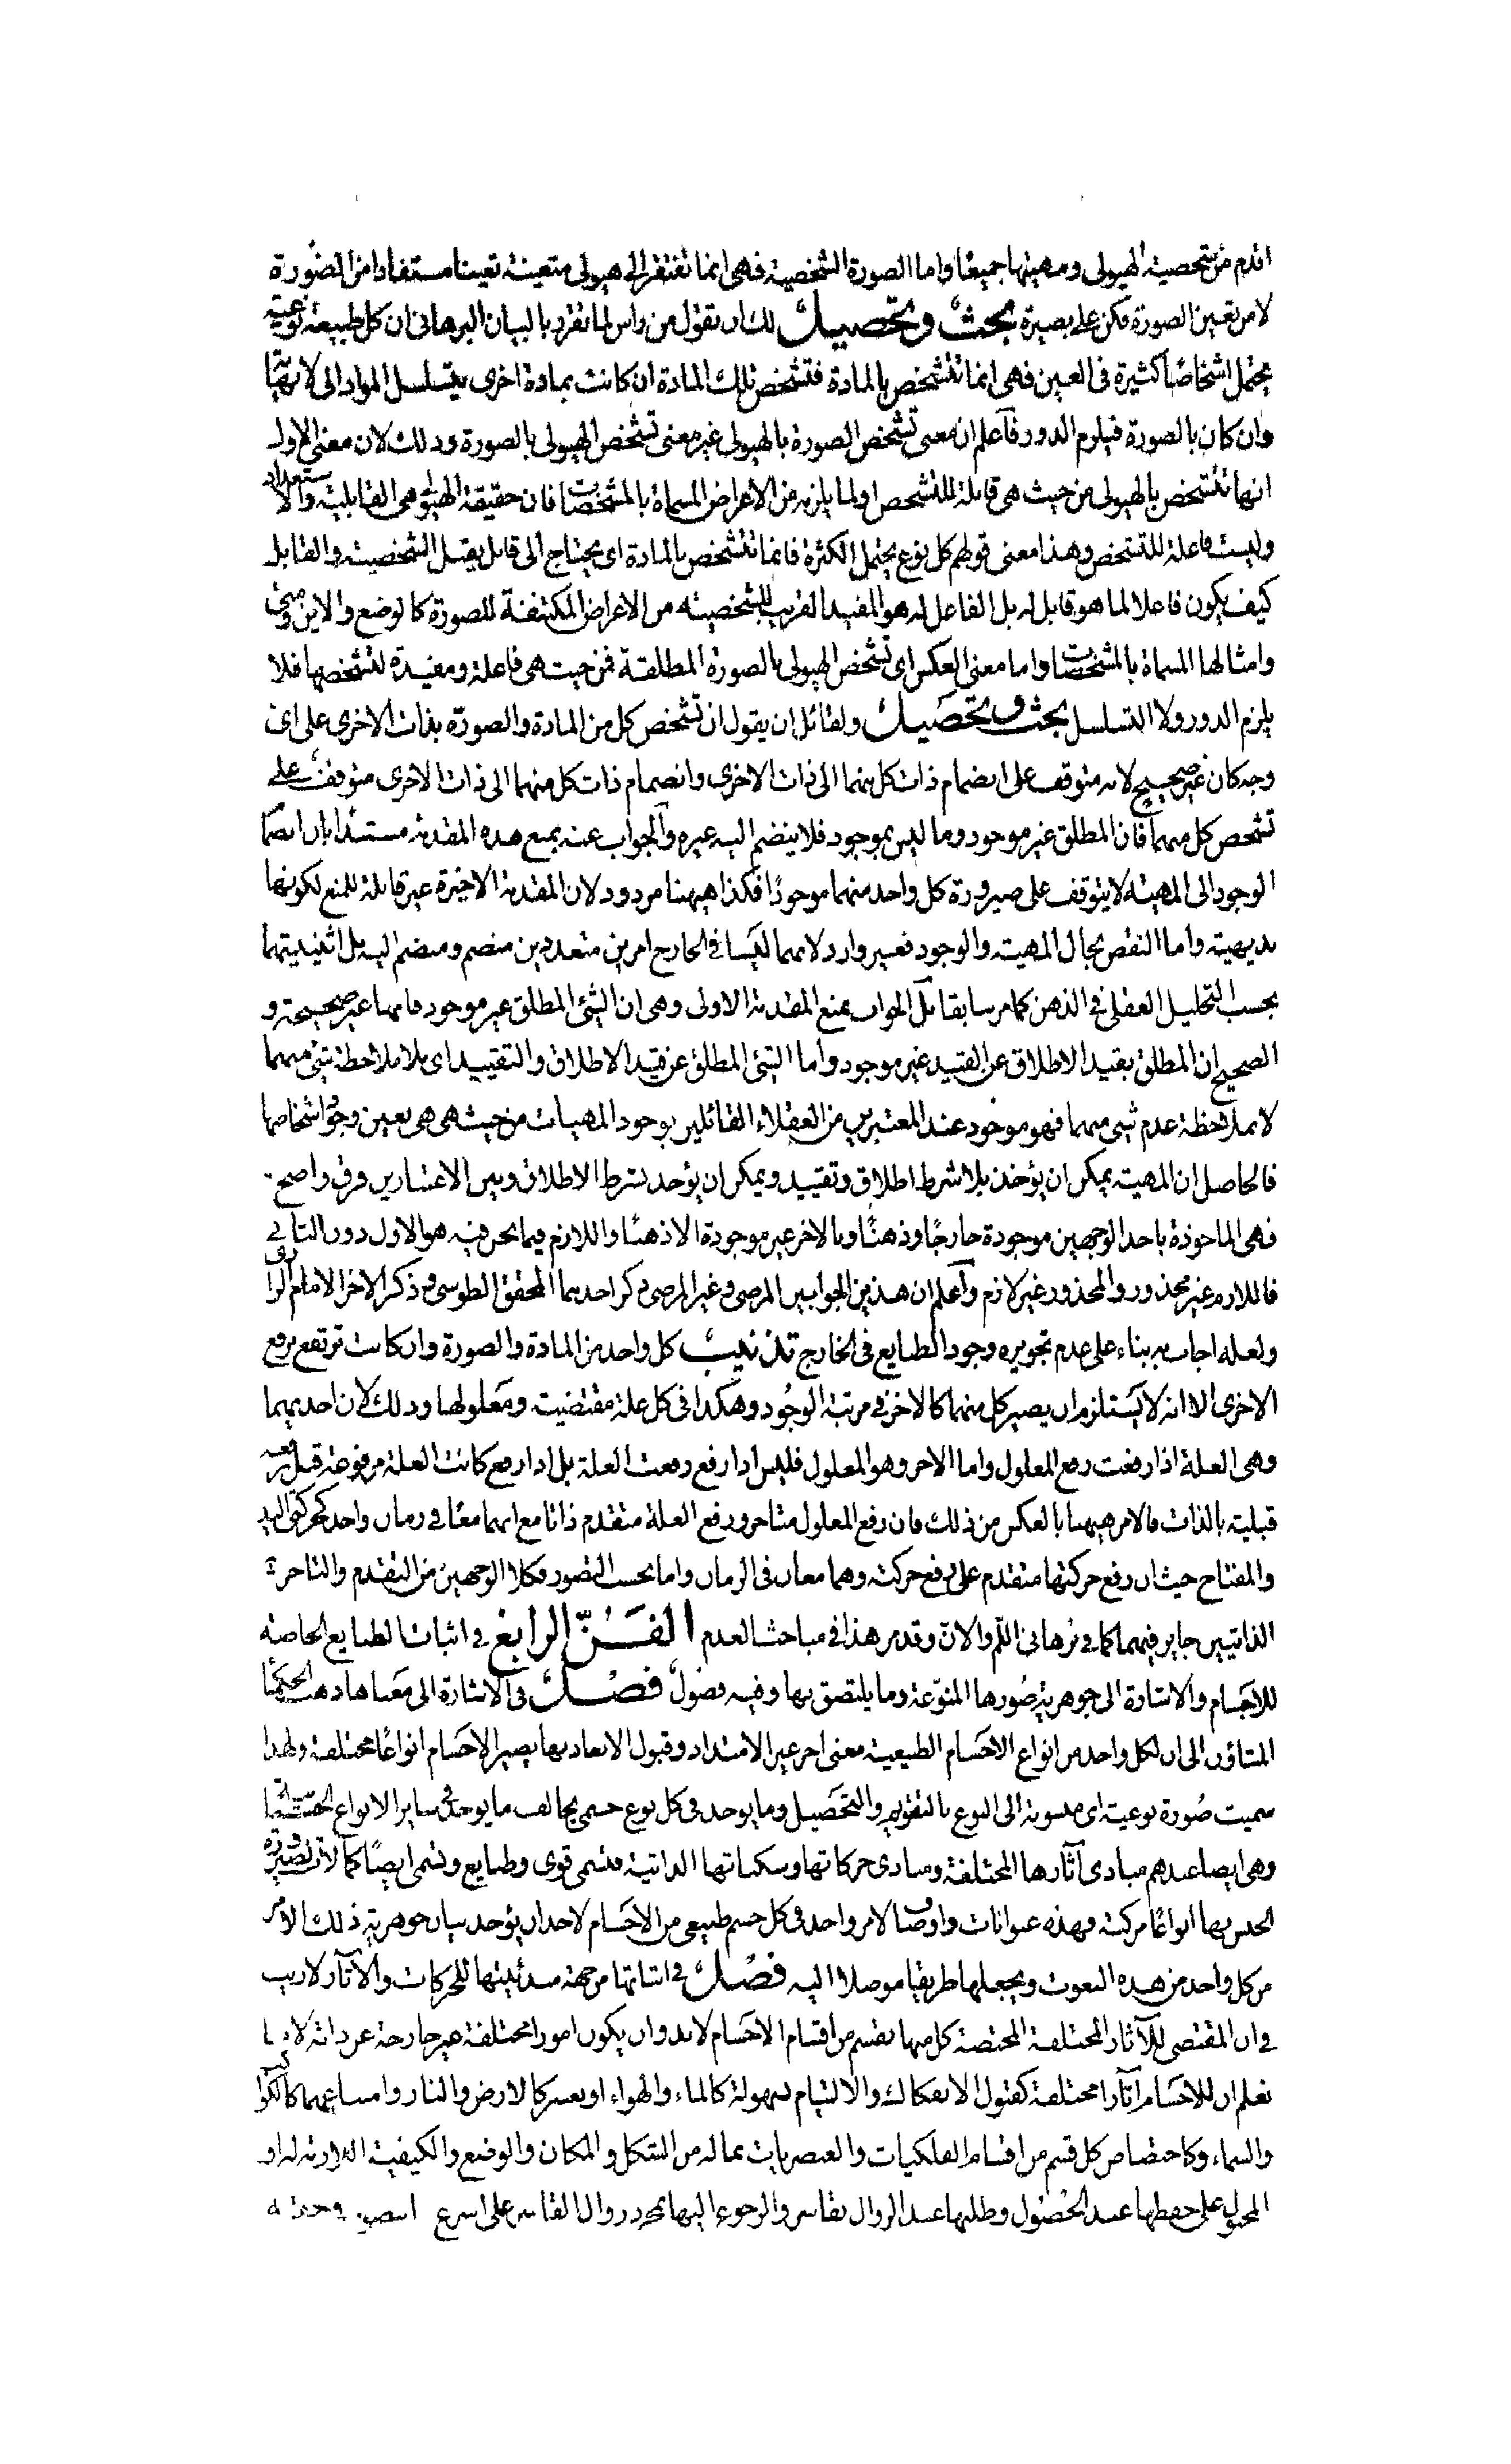 اقدم من شخصية الهيولى ومهيتها جميعا واما الصورة الشخصية فهى انما تفتقر الى هيولى متعينة تعينا مستفادا من الصورة
لا من تعين الصورة فكن على بصيرة بحث وتحصيل لك ان تقول من راس لما تقرر بالبيان البرهانى ان كل طبيعة نوعية
يحتمل اشخاصا كثيرة فى العين فهى انما تتشخص بالمادة فتشخص تلك المادة ان كانت بمادة اخرى يتسلسل المواد الى لا نهاية
وان كان بالصورة فيلزم الدور فاعلم ان معنى تشخص الصورة بالهيولى غير معنى تشخص الهيولى بالصورة وذلك لان معنى الاول
انها تتشخص بالهيولى من حيث هى قابلة للتشخص او لما يلزمه من الاعراض المسماة بالمشخصات فان حقيقة الهيولى هى القابلية والاستعداد
وليست فاعلة للتشخص وهذا معنى قولهم كل نوع يحتمل الكثرة فانما تتشخص بالمادة اى يحتاج الى قابل يقبل الشخصية والقابل
كيف يكون فاعلا لما هو قابل له بل الفاعل له هو المفيد القريب للشخصيته من الاعراض المكتنفة للصورة كالوضع والاين ومتى
وامثالها المسماة بالمشخصات واما معنى العكس اى تشخص الهيولى بالصورة المطلقة فمن حيث هى فاعلة ومفيدة لتشخصها فلا
يلزم الدور ولا التسلسل بحث وتحصيل ولقائل ان يقول ان تشخص كل من المادة والصورة بذات الاخرى على اى
وجه كان غير صحيح لانه متوقف على انضمام ذات كل منهما الى ذات الاخرى وانضمام ذات كل منهما الى ذات الاخرى متوقف على
تشخص كل منهما فان المطلق غير موجود وما ليس بموجود فلا ينضم اليه غيره والجواب عنه بمنع هذه المقدمة مستندا بان انضمام
الوجود الى المهية لا يتوقف على صيرورة كل واحد منهما موجودا فكذا هيهنا مردود لان المقدمة الاخيرة غير قابلة للمنع لكونها
بديهية واما النقض بحال المهية والوجود فغير وارد لانهما ليسا فى الخارج امرين متعددين منضم ومنضم اليه بل اثنينيتهما
بحسب التحليل العقلى فى الذهن كما مر سابقا بل الجواب بمنع المقدمة الاولى وهى ان الشئ المطلق غير موجود فانها غير صحيحة و
الصحيح ان المطلق بقيد الاطلاق عن القيد غير موجود واما الشئ المطلق عن قيد الاطلاق والتقييد اى بلا ملاحظة شئ منهما
لا بملاحظة عدم شئ منهما فهو موجود عند المعتبرين من العقلاء القائلين بوجود المهيات من حيث هى هى بعين وجود اشخاصها
فالحاصل ان المهية يمكن ان يؤخذ بلا شرط اطلاق وتقييد ويمكن ان يؤخذ بشرط الاطلاق وبين الاعتبارين فرق واضح
فهى الماخوذة باحد الوجهين موجودة خارجا وذهنا وبالاخر غير موجودة الا ذهنا واللازم فيما نحن فيه هو الاول دون الثانى
فاللازم غير محذور والمحذور غير لازم واعلم ان هذين الجوابين المرضى وغير المرضى ذكر احدهما المحقق الطوسى وذكر الاخر الامام الرازى
ولعله اجاب به بناء على عدم تجويزه وجود الطبايع فى الخارج تذنيب كل واحد من المادة والصورة وان كانت ترتفع برفع
الاخرى الا انه لا يستلزم ان يصير كل منهما كالاخر فى مرتبة الوجود وهكذا فى كل علة مقتضية ومعلولها وذلك لان احديهما
وهى العلة اذا رفعت رفع المعلول واما الاخر وهو المعلول فليس اذا رفع رفعت العلة بل اذا رفع كانت العلة مرفوعة قبل رفعه
قبلية بالذات فالامر هيهنا بالعكس من ذلك فان رفع المعلول متاخر ورفع العلة متقدم ذاتا مع انهما معا فى زمان واحد كحركتى اليد
والمفتاح حيث ان رفع حركتها متقدم على رفع حركته وهما معا فى الزمان واما بحسب التصور فكلا الوجهين من التقدم والتاخر
الذاتيين جايز فيهما كما فى برهانى اللم والان وقد مر هذا فى مباحث العدم الفن الرابع فى اثبات الطبايع الخاصة
للاجسام والاشارة الى جوهرية صورها المنوعة وما يلتصق بها وفيه فصول فصل فى الاشارة الى معناها ذهب الحكماء
المشاؤن الى ان لكل واحد من انواع الاجسام الطبيعية معنى اخر غير الامتداد وقبول الابعاد بها يصير الاجسام انواعا مختلفة ولهذا
سميت صورة نوعية اى منسوبة الى النوع بالتقويم والتحصيل وما يوجد فى كل نوع جسمى يخالف ما يوجد فى ساير الانواع الجسمية
وهى ايضا عندهم مبادى آثارها المختلفة ومبادى حركاتها وسكناتها الذاتية فتسمى قوى وطبايع وتسمى ايضا كمالات لصيرورة
الجنس بها انواعا مركبة فهذه عنوانات واوصاف لامر واحد فى كل جسم طبيعى من الاجسام لاحد ان يؤخذ بيان جوهرية ذلك الامر
من كل واحد من هذه النعوت ويجعلها طريقا موصلا اليه فصل فى اثباتها من جهة مبدئيتها للحركات والآثار لا ريب
فى ان المقتضى للآثار المختلفة المختصة كل منها بقسم من اقسام الاجسام لا بد وان يكون امورا مختلفة غير خارجة عن ذاته لانا
نعلم ان للاجسام آثارا مختلفة كقبول الانفكاك والالتيام بسهولة كالماء والهواء او بعسر كالارض والنار وامتناعهما كالكواكب
والسماء وكاختصاص كل قسم من اقسام الفلكيات والعنصريات بما له من الشكل والمكان والوضع والكيفية اللازمة له او
المجبول على حفظها عند الحصول وطلبها عند الزوال بقاسر والرجوع اليها بمجرد زوال القاسر على اسرع